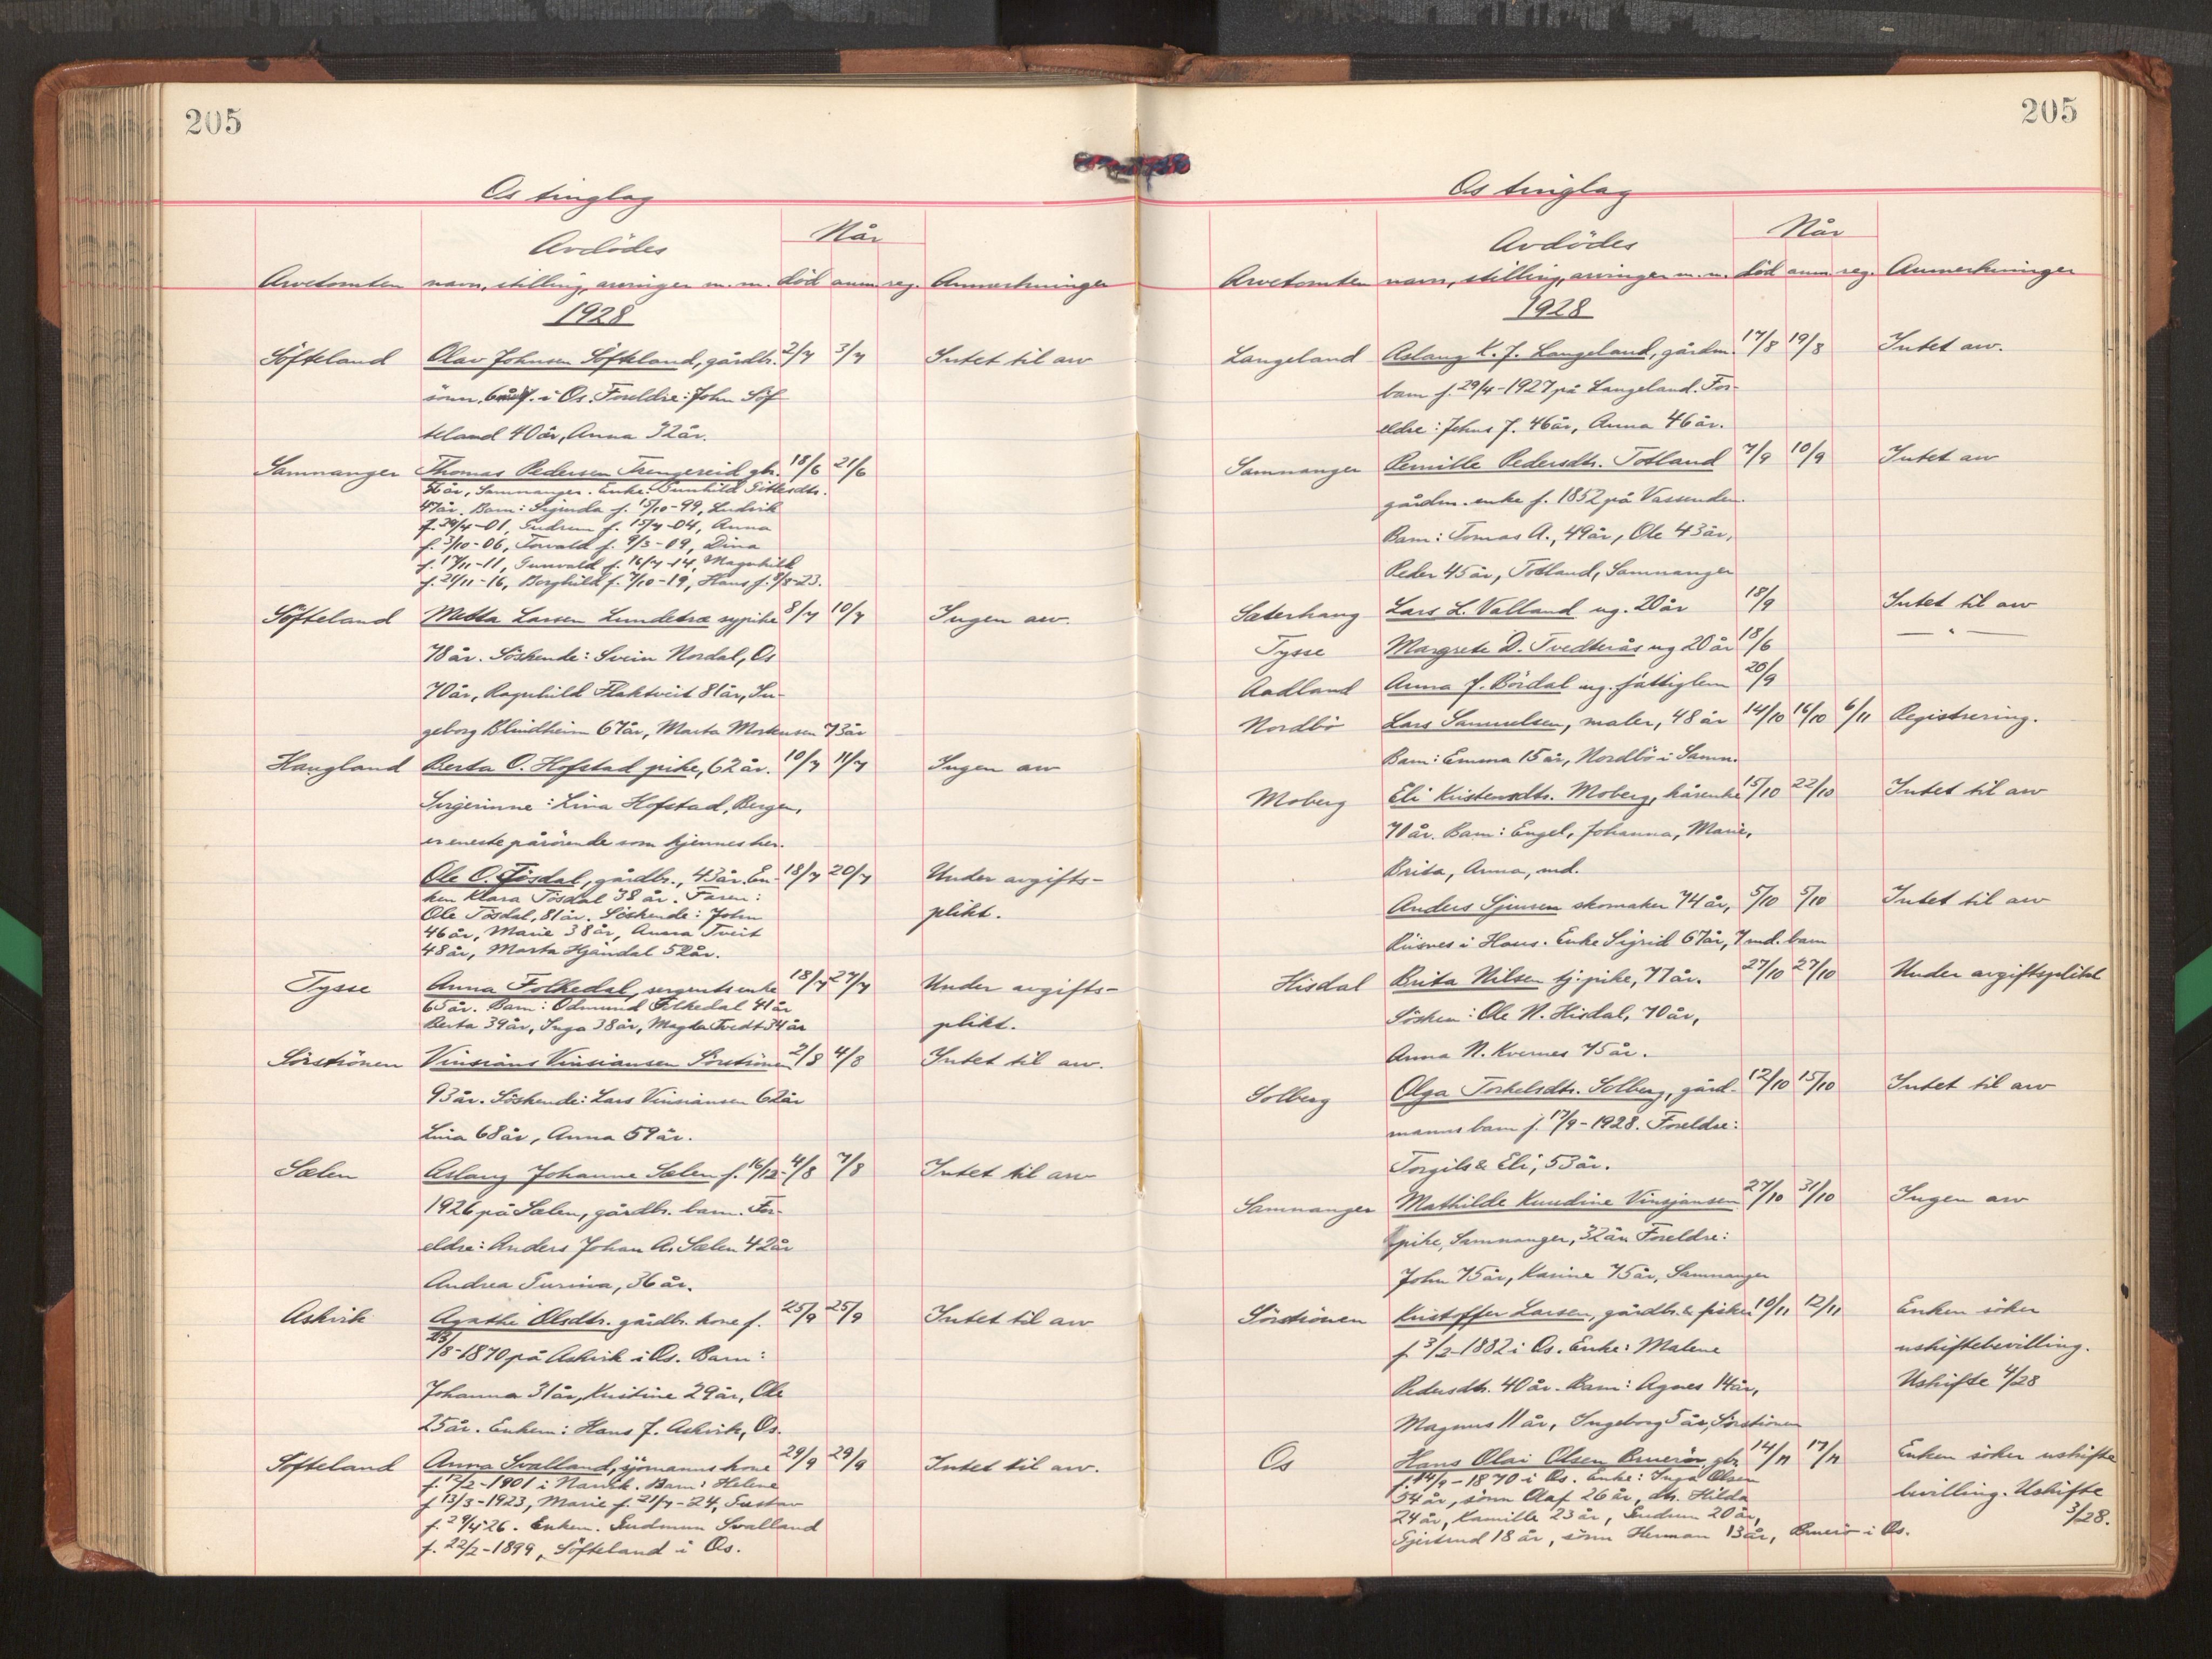 205
Os tinglag
Når
Avdödes
Arvetomten navn, stilling, arvinger m.m. död anm. reg. Anmerkninger
1928
Söfteland Olav Johnsen Söfteland, gårdbr. 2/7 3/7 Intet til arv
sönn, i Os. Foreldre: John Söf
teland 40 år, Anna 32 år.
Samnanger Thomas Pedersen Trengereid gbr. 18/6 21/6
56 år, Samnanger. Enke: Gunhild Gittlesdtr.
47 år. Barn: f. 15/10-99, Ludvik
f. 29/4-01, Gudrun f. 15/7-04, Anna
f. 3/10-06, Torvald f. 9/3-09, Dina
f. 17/11-11, Gunvald f. 16/7-14, Magnhild
f. 21/11-16, Borghild f. 7/10-19, Hans f. 9/8-23.
Söfteland Metta Larsen Lundetræ sypike 8/7 10/7 Ingen arv.
78 år. Söskende: Svein Nordal, Os
70 år, Ragnhild Flaktveit 81 år, In-
geborg Blindheim 67 år, Marta Mortensen 73 år
Haugland Berta O. Hofstad pike, 62 år. 10/7 11/7 Ingen arv
Svigerinne: Lina Hofstad, Bergen,
er eneste pårörende som kjennes her.
Ole O. Tösdal, gårdbr., 43 år. En- 18/7 20/7 Under avgifts-
ken Klara Tösdal 38 år. Faren:
Ole Tösdal, 81 år. Söskende: John plikt.
46 år, Marie 38 år, Anna Tveit
48 år, Marta Hjändal 52 år.
Tysse Anna Folkedal, sergents enke 18/7 27/7 Under avgifts-
65 år. Barn: Odmund Folkedal 41 år
Berta 39 år, Inga 38 år, Magda Tvedt 34 år plikt.
Sörströnen Vinsiäns Vinsiansen Sörströnen 2/8 4/8 Intet til arv.
93 år. Söskende: Lars Vinsiansen 62 år
Lina 68 år, Anna 59 år.
Sælen Aslaug Johanne Sælen f. 16/12- 4/8 7/8 Intet til arv
1926 på Sælen, gårdbr. barn. For-
eldre: Anders Johan A. Sælen 42 år
Andrea Gurina, 36 år.
Askvik Agathe Olsdtr. gårdbr. kone f. 25/9 25/9 Intet til arv
23/8-1870 på Askvik i Os. Barn:
Johanna 31 år, Kristine 29 år, Ole
25 år. Enkem: Hans J. Askvik, Os.
Söfteland Anna Svalland, sjömanns kone 29/9 29/9 Intet til arv.
f. 12/2-1901 i Narvik. Barn: Helene
f 13/3-1923, Marie f. 21/7-24, Gustav
f. 29/4-26. Enkem. Gudmun Svalland
f. 22/2-1899, Söfteland i Os.
205
Os tinglag
Når
Avdödes
Arvetomten navn, stilling, arvinger m.m. död anm reg. Anmerkninger
1928
Langeland Aslaug K. J. Langeland, gårdm. 17/8 19/8 Intet arv.
barn f. 29/4-1927 på Langeland. For-
eldre: Johns J. 46 år, Anna 46 år.
Samnanger Pernille Pedersdtr. Totland 7/9 10/9 Intet arv
gårdm. enke f. 1852 på Vassenden.
Barn: Tomas A., 49 år, Ole 43 år,
Peder 45 år, Totland, Samnanger
Sæterhaug Lars L. Valland ug. 20 år 18/9 Intet til arv
Tysse Margrete D. Tvedterås ug 20 år 18/6 — " —
Aadland Anna J. Bördal ug. fattiglem 20/9
Nordbö Lars Samuelsen, maler, 48 år 14/10 16/10 6/11 Registrering.
Barn: Emma 15 år, Nordbö i Samn.
Moberg Eli Kristensdtr. Moberg, kårenke 15/10 22/10 Intet til arv
71 år. Barn: Engel, Johanna, Marie,
Brita, Anna, md.
Anders Sjursen skomaker 74 år, 5/10 5/10 Intet til arv
Risnes i Haus. Enke Sigrid 67 år, 7 md. barn
Hisdal Brita Nilsen tj: pike, 77 år. 27/10 27/10 Under avgiftsplikt
Sösken: Ole N. Hisdal, 70 år,
Anna N. Kvernes 75 år.
Solberg Olga Torkelsdtr. Solberg, gård- 12/10 15/10 Intet til arv
manns barn f. 17/9-1928. Foreldre:
Torgils & Eli, 53 år.
Samnanger Mathilde Kundine Vinsjansen 27/10 31/10 Ingen arv
pike, Samnanger, 32 år. Foreldre:
John 75 år, Karine 75 år, Samnanger
Sörströnen Kristoffer Larsen, gårdbr. & fisker 10/11 12/11 Enken söker
f. 3/2-1882 i Os. Enke: Malene uskiftebevilling.
Pedersdtr. 40 år. Barn: Agnes 14 år, Uskifte 4/28
Magnus 11 år, Ingeborg 5 år, Sörströnen
Os Hans Olai Olsen Bruerör, gbr. 14/11 17/11 Enken söker uskifte
f. 14/9-1870 i Os. Enke: Inga Olsen
54 år, sönn Olaf 26 år, dtr. Hilda bevilling. Uskifte
24 år, Kamilla 23 år, Gudrun 20 år, 3/28.
Gjertrud 18 år, sönn Herman 13 år, Bruerör i Os.